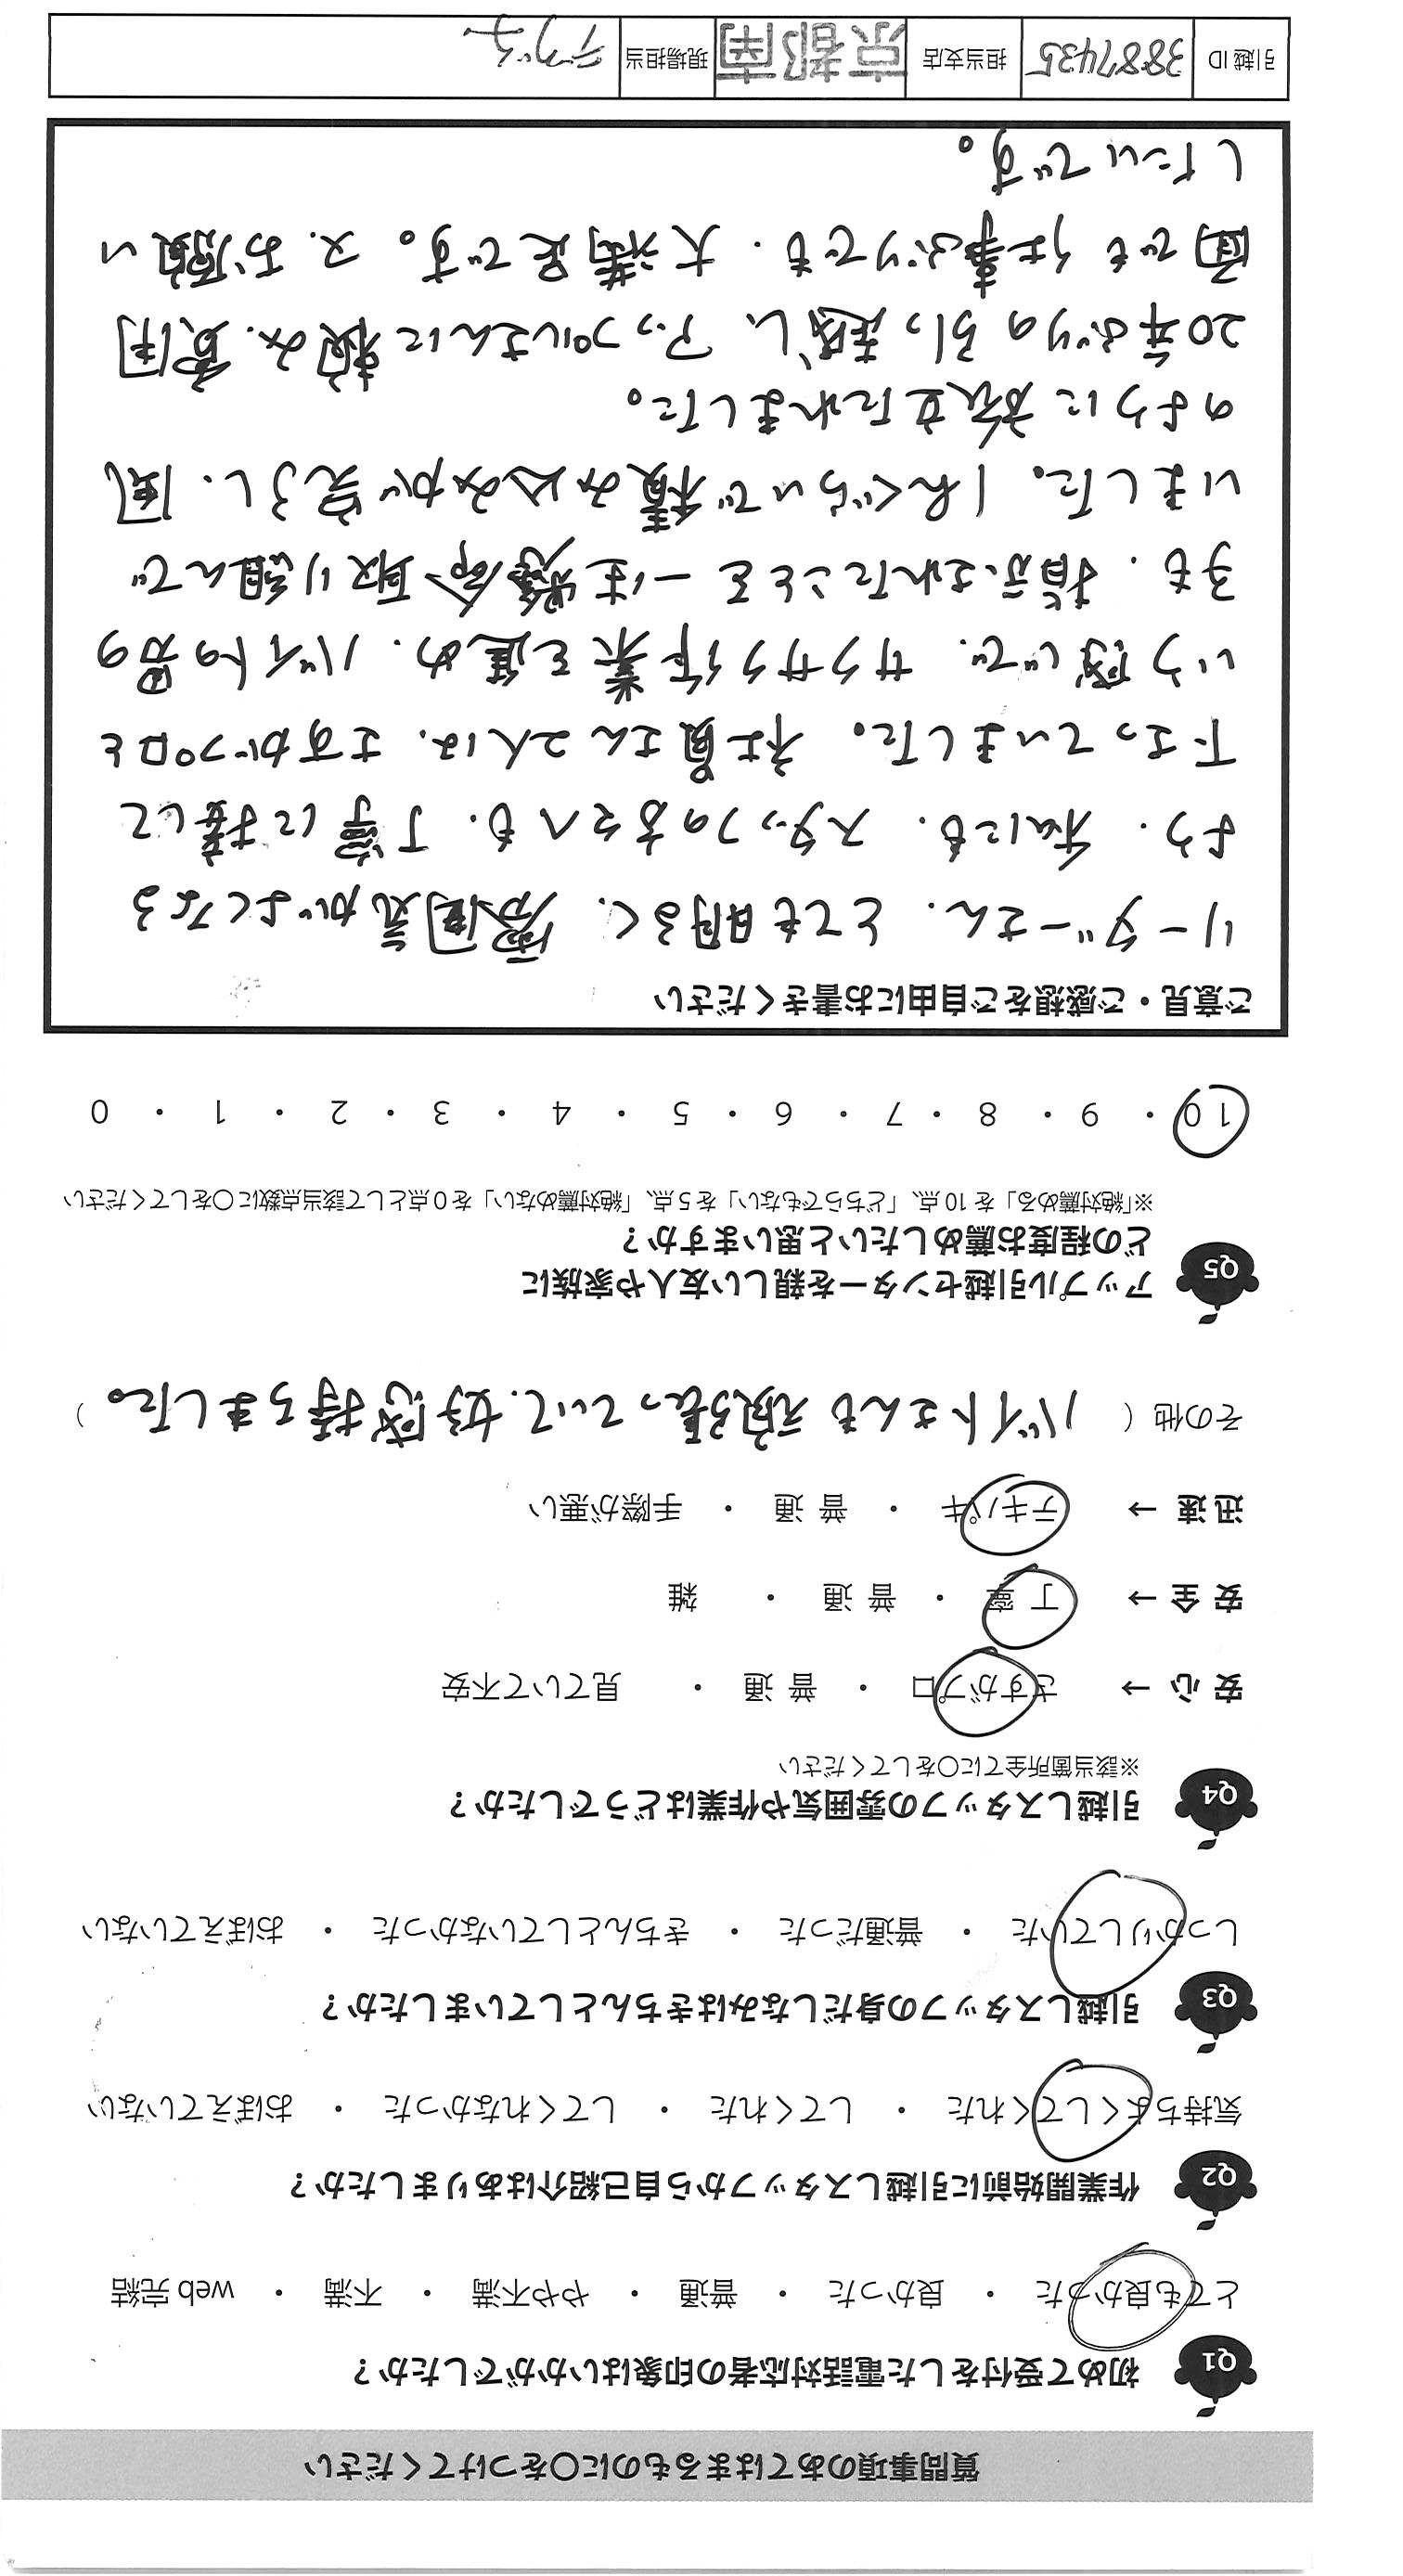 質問事項のあてはまるものに〇をつけてください
Q1 初めて受付をした電話対応者の印象はいかがでしたか？
とても良かった ・ 良かった ・ 普通 ・ やや不満 ・ 不満 ・ web 完結
Q2 作業開始前に引越しスタッフから自己紹介はありましたか？
気持ちよくしてくれた ・ してくれた ・ してくれなかった ・ おぼえていない
Q3 引越しスタッフの身だしなみはきちんとしていましたか？
しっかりしていた ・ 普通だった ・ きちんとしていなかった ・ おぼえていない
Q4 引越しスタッフの雰囲気や作業はどうでしたか？
※該当箇所全てに〇をしてください
安 心 → さすがプロ ・ 普 通 ・ 見ていて不安
安 全 → 丁 寧 ・ 普 通 ・ 雑
迅 速 → テキパキ ・ 普 通 ・ 手際が悪い
その他（ バイトさんも頑張っていて、好感持ちました。 ）
Q5 アップル引越センターを親しい友人や家族に
どの程度お薦めしたいと思いますか？
※「絶対薦める」を 10 点、「どちらでもない」を 5 点、「絶対薦めない」を 0 点として該当点数に〇をしてください
10 ・ 9 ・ 8 ・ 7 ・ 6 ・ 5 ・ 4 ・ 3 ・ 2 ・ 1 ・ 0
ご意見・ご感想をご自由にお書きください
リーダーさん、とても明るく、雰囲気がよくなる
よう、私にも、スタッフの方々へも、丁寧に接して
下さっていました。社員さん2人は、さすがプロと
いう感じで、サクサク作業を進め、バイトの男の
子も、指示されたことを一生懸命取り組んで
いました。1hぐらいで積み込みが完了し、風
のように旅立たれました。
20年ぶりの引っ越し、アップルさんに頼み、費用
面でも仕事ぶりでも、大満足です。又、お願い
したいです。
引越 ID 3887435 担当支店 京都南 現場担当